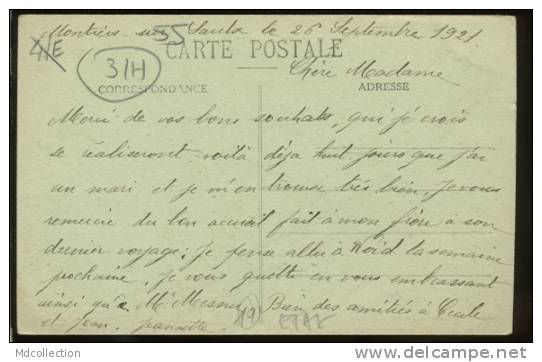 Montiers-sur-Saulx le 26 Septembre 1921.
55
CARTE POSTALE
31H
Chère Madame
CORRESPONDANCE
ADRESSE
Merci de vos bons souhaits, qui je crois
se réaliseront, voilà déja huit jours que j'ai
un mari et je m'en trouve très bien. Je vous
remercie du bon accueil fait à mon frère à son
dernier voyage; Je pense aller à Void la semaine
prochaine, Je vous quitte en vous embrassant
ainsi qu'a Mr Bien des amitiés à
et Jean. Jeannette.
19
Mdcollection
http://www.delcampe.net